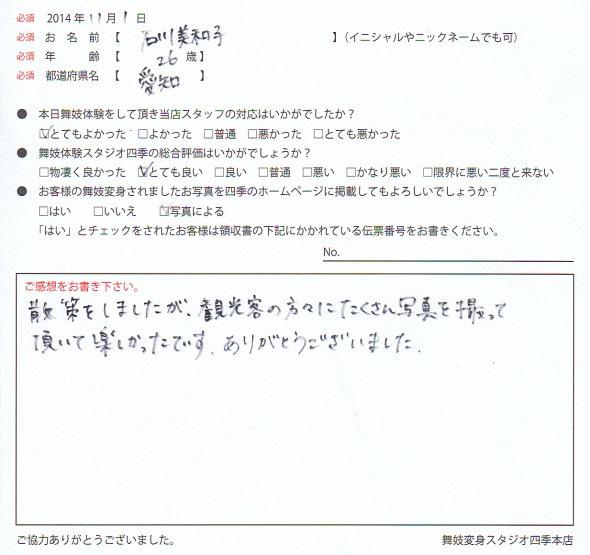 必須 2014年11月1日
必須 お名前【 石川美和子 】(イニシャルやニックネームでも可)
必須 年齢【 26歳】
必須 都道府県名【 愛知 】
● 本日舞妓体験をして頂き当店スタッフの対応はいかがでしたか？
☑とてもよかった □よかった □普通 □悪かった □とても悪かった
● 舞妓体験スタジオ四季の総合評価はいかがでしょうか？
□物凄く良かった ☑とても良い □良い □普通 □悪い □かなり悪い □限界に悪い二度と来ない
● お客様の舞妓変身されましたお写真を四季のホームページに掲載してもよろしいでしょうか？
□はい □いいえ ☑写真による
「はい」とチェックをされたお客様は領収書の下記にかかれている伝票番号をお書きください。
No.
ご感想をお書き下さい。
散策をしましたが、観光客の方々にたくさん写真を撮って
頂いて楽しかったです。ありがとうございました。
ご協力ありがとうございました。
舞妓変身スタジオ四季本店